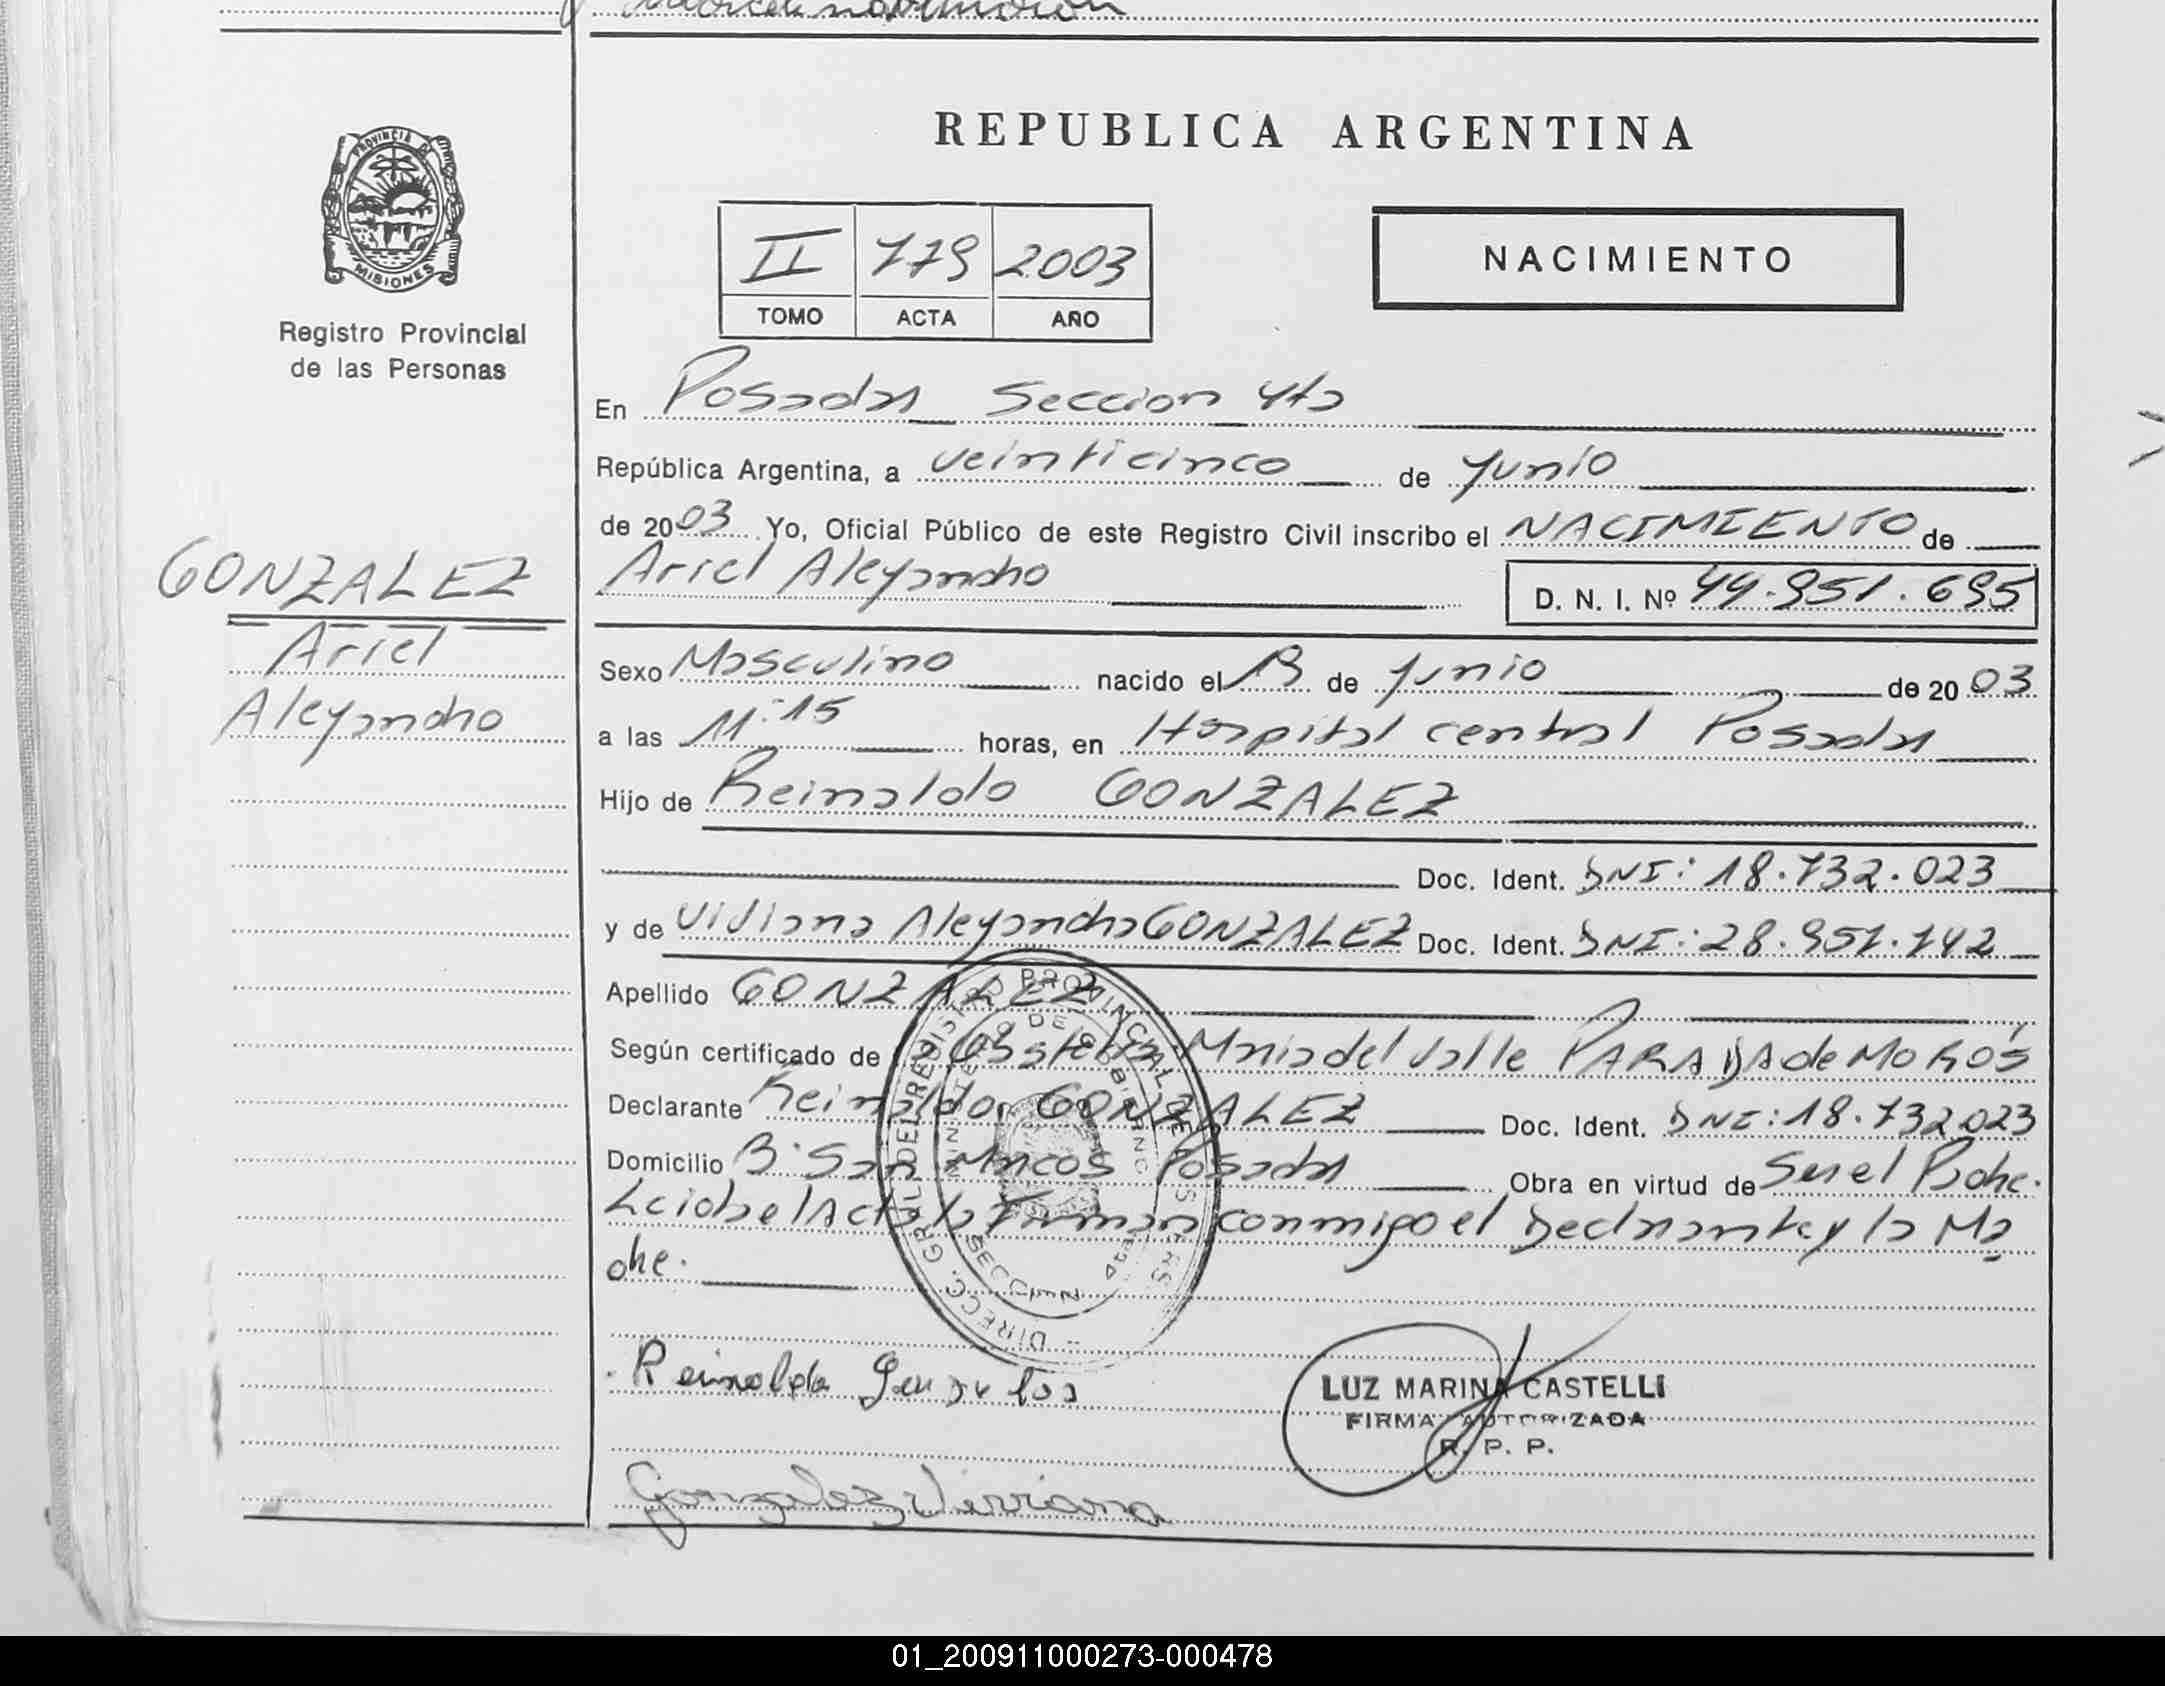 REPUBLICA ARGENTINA
PROVINCIA DE
MISIONES
Registro Provincial
de las Personas
II 779 2003
TOMO ACTA AÑO
NACIMIENTO
En Posadas Seccion 4ta
República Argentina, a veinticinco de Junio
de 2003 Yo, Oficial Público de este Registro Civil inscribo el NACIMIENTO de
Ariel Alejandro
D. N. I. Nº 44.951.695
GONZALEZ
Ariel
Alejandro
Sexo Masculino nacido el 13 de Junio de 2003
a las 11:15 horas, en Hospital central Posadas
Hijo de Reinaldo GONZALEZ
Doc. Ident. DNI: 18.732.023
y de Viviana Alejandra GONZALEZ Doc. Ident. DNI: 28.951.742
Apellido GONZALEZ
Según certificado de Maria del Valle PARADA de MOROS
Declarante Reinaldo GONZALEZ Doc. Ident. DNI: 18.732023
Domicilio Bº San Marcos Posadas Obra en virtud de Ser el Padre.
Leida el Acta la Firman conmigo el Declarante y la Ma
dre.
DIRECC. GRAL. DEL REGISTRO PROVINCIAL DE LAS PERS.
MINISTERIO DE GOBIERNO
SECCION 4ta
Reinaldo
LUZ MARINA CASTELLI
FIRMA AUTORIZADA
R. P. P.
Gonzalez Viviana
01_200911000273-000478